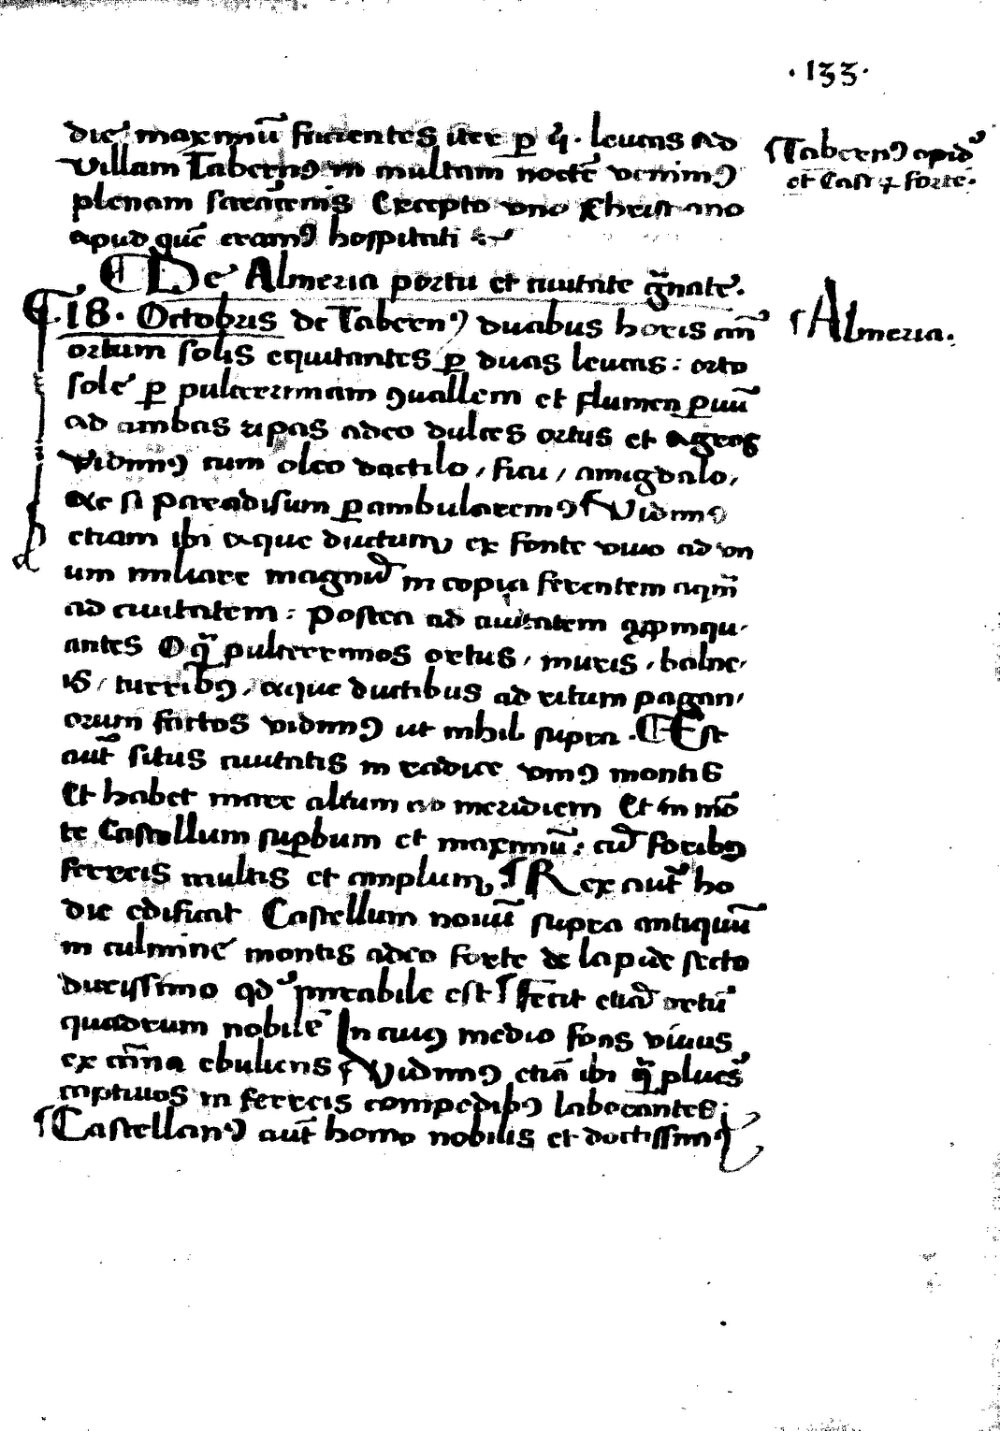 ·133·
die maximũ facientes iter ꝑ 4· leucas ad
villam Tabernꝯ in multam noctẽ venimꝯ
plenam saracenis Excepto vno Christiano
apud quẽ eramꝯ hospitati
¶Tabernꝯ opidũ
et Castꝝ forte·
¶ De Almeria portu et ciuitate g̃nate·
¶·18· Octobris de Tabernꝯ duabus horis añ
¶Almeria·
ortum solis equitantes ꝑ duas leucas: orto
sole ꝑ pulcerrimam ꝯuallem et flumen ꝑuũ
ad ambas ripas adeo dulces ortus et agros
vidimꝯ cum oleo dactilo / ficu / amigdalo /
Ac si paradisum ꝑambularemꝯ ¶Vidimꝯ
etiam ibi aque ductum ex fonte viuo ad vn
um miliare magnũ in copia ferentem aqm̃
ad ciuitatem: postea ad ciuitatem ꝓpinqu-
antes O q̃ pulcerrimos ortus / muris / balne-
is / turribꝯ / aque ductibus ad ritum pagan-
orum factos vidimꝯ ut nihil supra · ¶Est
aut̃ situs ciuitatis in radice vniꝯ montis
Et habet mare altum ad meridiem Et in mõ
te Castellum suꝑbum et maximũ: cũ foribꝯ
ferreis multis et amplum ¶Rex aut̃ ho
die edificat Castellum nouũ supra antiquũ
in culmine montis adeo forte de lapide secto
durissimo qd mirabile est ¶fecit etiã ortũ
quadrum nobilẽ In cuiꝯ medio fons viuus
ex arena ebuliens ¶Vidimꝯ etiã ibi q̃ plures
captiuos in ferreis compedibꝯ laborantes:
¶Castellanꝯ aut̃ homo nobilis et doctissimꝯ